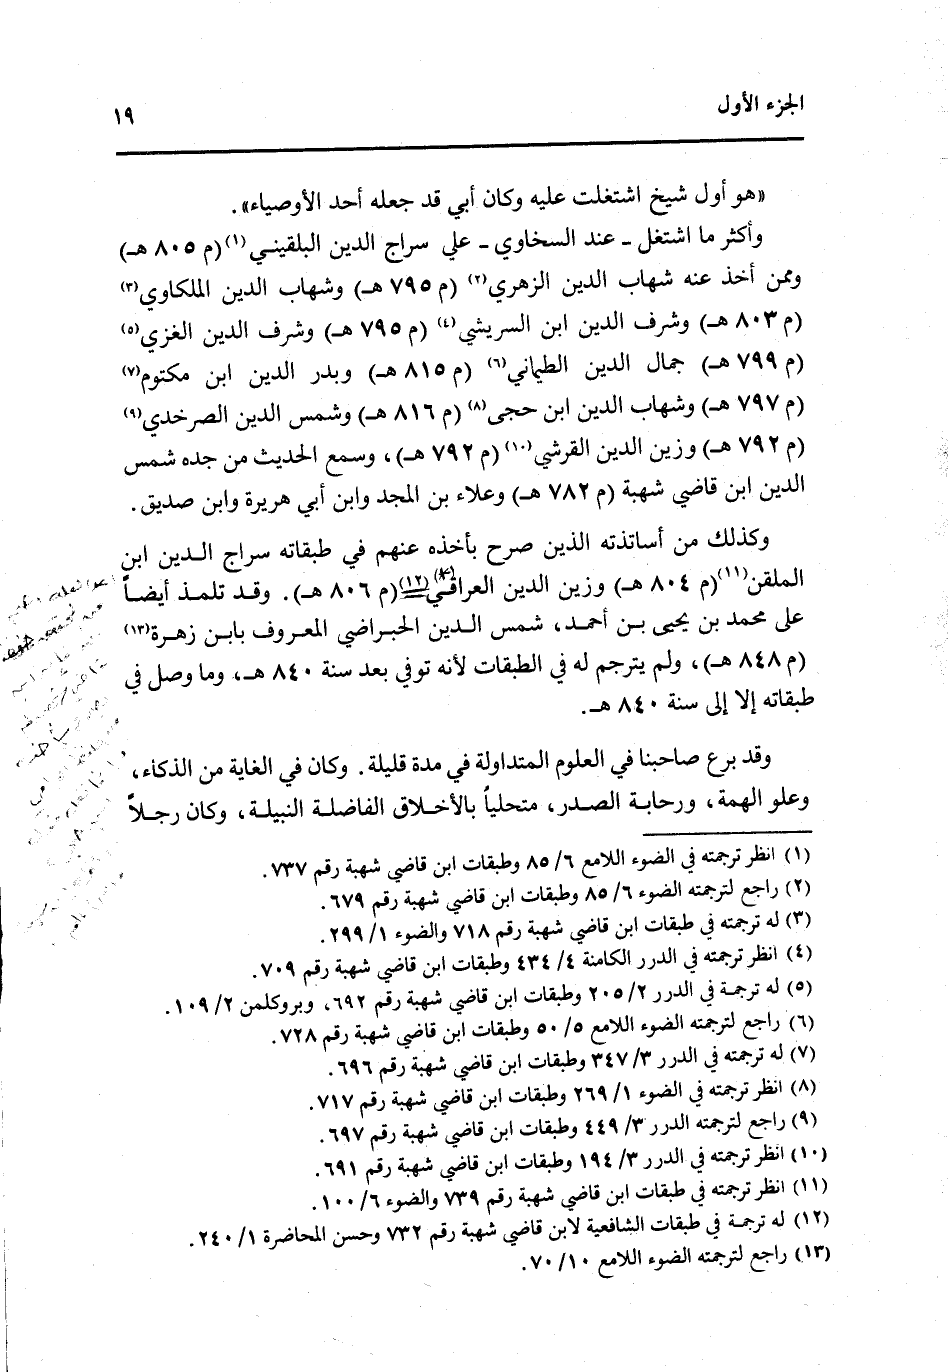 الجزء الأول
١٩
«هو أول شيخ اشتغلت عليه وكان أبي قد جعله أحد الأوصياء».
وأكثر ما اشتغل ـ عند السخاوي ـ على سراج الدين البلقيني(١) (م ٨٠٥ هـ)
وممن أخذ عنه شهاب الدين الزهري(٢) (م ٧٩٥ هـ) وشهاب الدين الملكاوي(٣)
(م ٨٠٣ هـ) وشرف الدين ابن السريشي(٤) (م ٧٩٥ هـ) وشرف الدين الغزي(٥)
(م ٧٩٩ هـ) جمال الدين الطيماني(٦) (م ٨١٥ هـ) وبدر الدين ابن مكتوم(٧)
(م ٧٩٧ هـ) وشهاب الدين ابن حجى(٨) (م ٨١٦ هـ) وشمس الدين الصرخدي(٩)
(م ٧٩٢ هـ) وزين الدين القرشي(١٠) (م ٧٩٢ هـ)، وسمع الحديث من جده شمس
الدين ابن قاضي شهبة (م ٧٨٢ هـ) وعلاء بن المجد وابن أبي هريرة وابن صديق.
وكذلك من أساتذته الذين صرح بأخذه عنهم في طبقاته سراج الدين ابن
الملقن(١١) (م ٨٠٤ هـ) وزين الدين العراقي(١٢) (م ٨٠٦ هـ). وقد تلمذ أيضاً
على محمد بن يحيى بن أحمد، شمس الدين الحبراضي المعروف بابن زهرة(١٣)
(م ٨٤٨ هـ)، ولم يترجم له في الطبقات لأنه توفي بعد سنة ٨٤٠ هـ، وما وصل في
طبقاته إلا إلى سنة ٨٤٠ هـ.
وقد برع صاحبنا في العلوم المتداولة في مدة قليلة. وكان في الغاية من الذكاء،
وعلو الهمة، ورحابة الصدر، متحلياً بالأخلاق الفاضلة النبيلة، وكان رجلاً
(١) انظر ترجمته في الضوء اللامع ٦/ ٨٥ وطبقات ابن قاضي شهبة رقم ٧٣٧.
(٢) راجع لترجمته الضوء ٦/ ٨٥ وطبقات ابن قاضي شهبة رقم ٦٧٩.
(٣) له ترجمته في طبقات ابن قاضي شهبة رقم ٧١٨ والضوء ١/ ٢٩٩.
(٤) انظر ترجمته في الدرر الكامنة ٤/ ٤٣٤ وطبقات ابن قاضي شهبة رقم ٧٠٩.
(٥) له ترجمة في الدرر ٢/ ٢٠٥ وطبقات ابن قاضي شهبة رقم ٦٩٢، وبروكلمن ٢/ ١٠٩.
(٦) راجع لترجمته الضوء اللامع ٥/ ٥٠ وطبقات ابن قاضي شهبة رقم ٧٢٨.
(٧) له ترجمته في الدرر ٣/ ٣٤٧ وطبقات ابن قاضي شهبة رقم ٦٩٦.
(٨) انظر ترجمته في الضوء ١/ ٢٦٩ وطبقات ابن قاضي شهبة رقم ٧١٧.
(٩) راجع لترجمته الدرر ٣/ ٤٤٩ وطبقات ابن قاضي شهبة رقم ٦٩٧.
(١٠) انظر ترجمته في الدرر ٣/ ١٩٤ وطبقات ابن قاضي شهبة رقم ٦٩١.
(١١) انظر ترجمته في طبقات ابن قاضي شهبة رقم ٧٣٩ والضوء ٦/ ١٠٠.
(١٢) له ترجمة في طبقات الشافعية لابن قاضي شهبة رقم ٧٣٢ وحسن المحاضرة ١/ ٢٤٠.
(١٣) راجع لترجمته الضوء اللامع ١٠/ ٧٠.